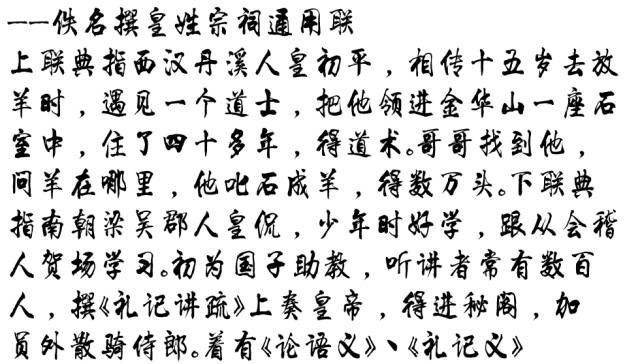 ——佚名撰皇姓宗祠通用联
上联典指西汉丹溪人皇初平，相传十五岁去放
羊时，遇见一个道士，把他领进金华山一座石
室中，住了四十多年，得道术。哥哥找到他，
问羊在哪里，他叱石成羊，得数万头。下联典
指南朝梁吴郡人皇侃，少年时好学，跟从会稽
人贺场学习。初为国子助教，听讲者常有数百
人，撰《礼记讲疏》上奏皇帝，得进秘阁，加
员外散骑侍郎。着有《论语义》、《礼记义》